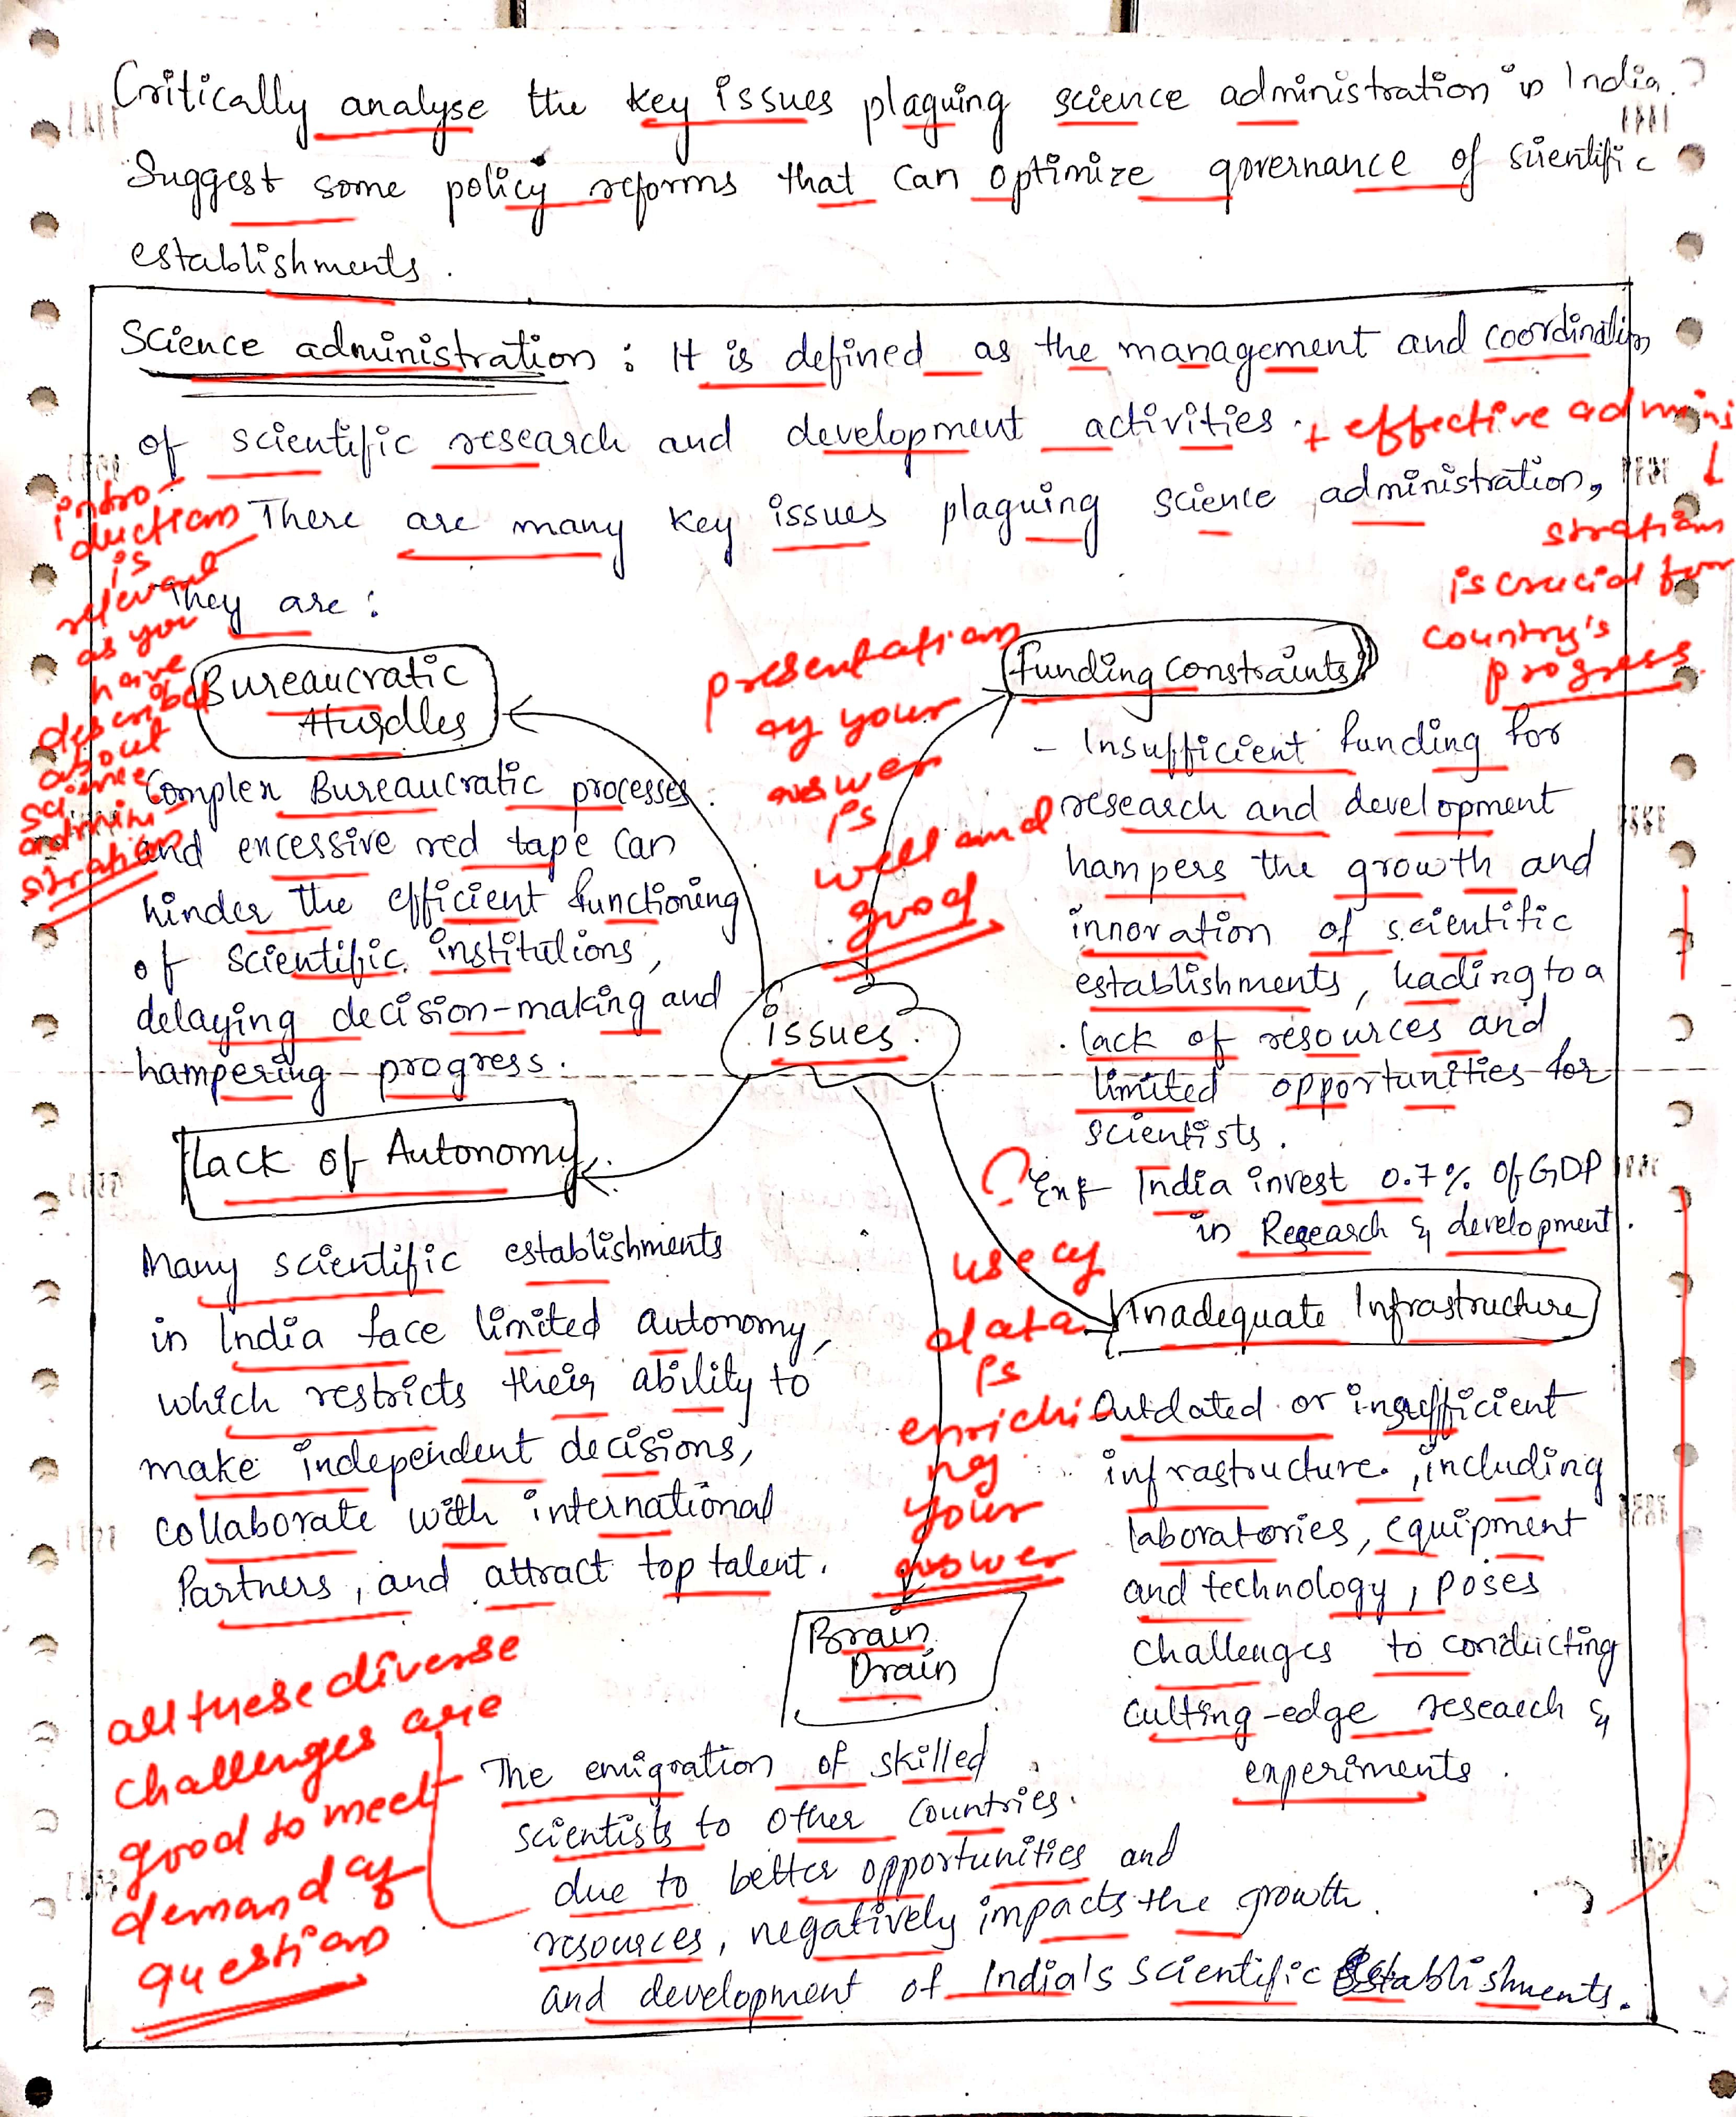 Critically analyse the key issues plaguing science administration in India?
Suggest some policy reforms that can optimize governance of scientific
establishments.
Science administration : It is defined as the management and coordination
of scientific research and development activities.
+ effective admini
stration
is crucial for
country's
progress.
intro-
duction
is
relevant
as you
have
described
about
science
admini-
stration
There are many key issues plaguing science administration,
They are :
Bureaucratic
Hurdles
Complex Bureaucratic processes
and excessive red tape can
hinder the efficient functioning
of scientific institutions,
delaying decision-making and
hampering progress.
presentation
of your
answer
is
well and
good
Funding Constraints
- Insufficient funding for
research and development
hampers the growth and
innovation of scientific
establishments, leading to a
lack of resources and
limited opportunities for
scientists.
India invest 0.7% of GDP
in Research & development.
issues.
Lack of Autonomy
Many scientific establishments
in India face limited autonomy,
which restricts their ability to
make independent decisions,
collaborate with international
Partners, and attract top talent.
use of
data
is
enrichi
ng
your
answer
Inadequate Infrastructure
Outdated or insufficient
infrastructure, including
laboratories, equipment
and technology, poses
challenges to conducting
cutting-edge research &
experiments.
Brain
Drain
The emigration of skilled
scientists to other countries.
due to better opportunities and
resources, negatively impacts the growth
and development of India's scientific Establishments.
all these diverse
challenges are
good to meet
demand of
question